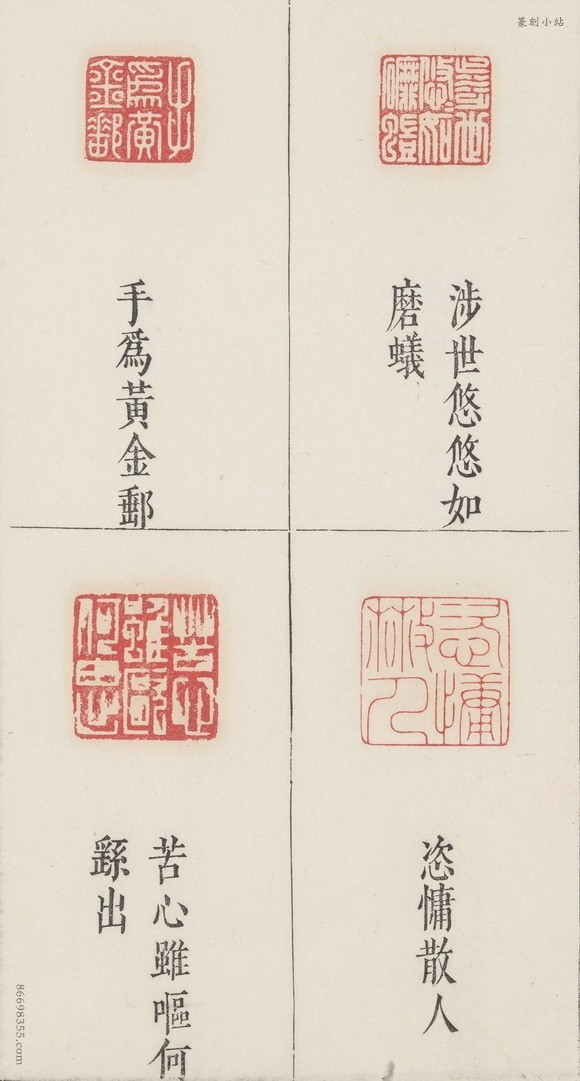 篆刻小站
涉世悠悠如
磨蟻
手爲黃金郵
恣慵散人
苦心雖嘔何
繇出
86698355.com